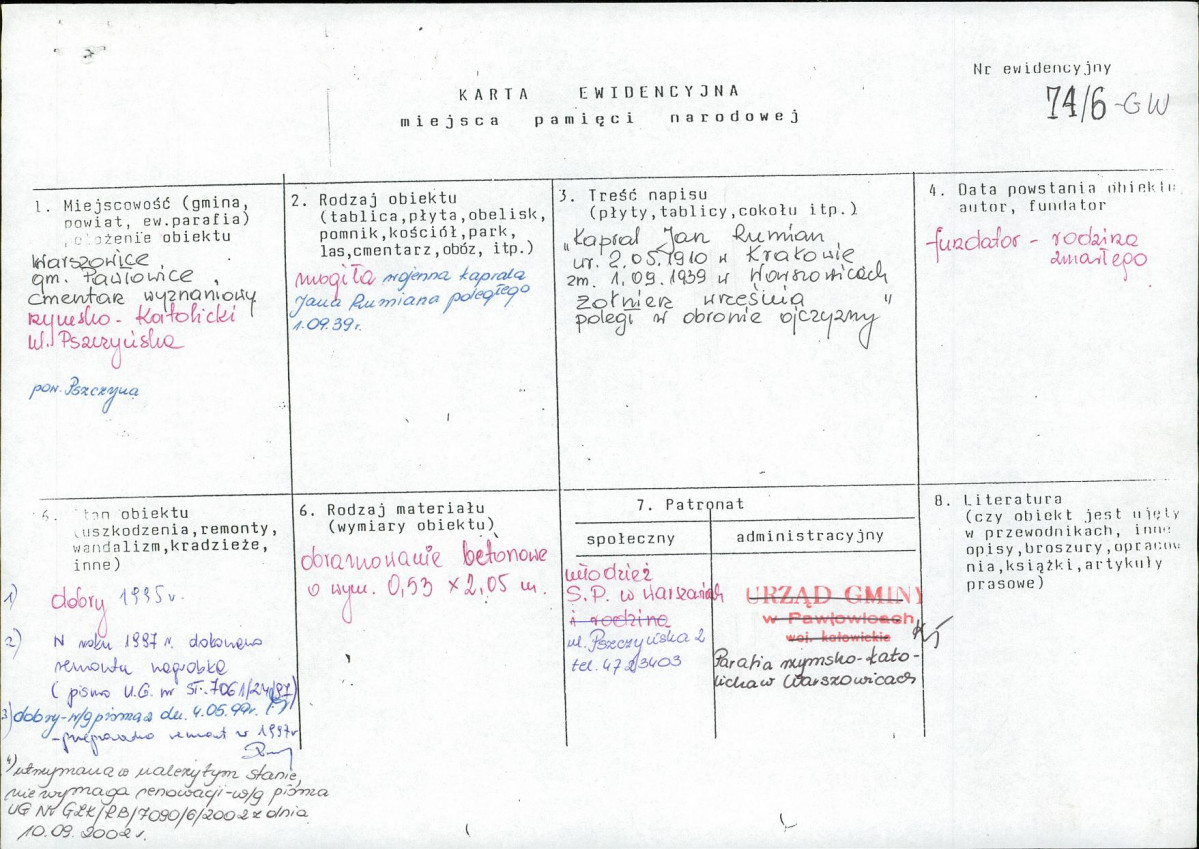 Nr ewidencyjny
74/6-GW
KARTA EWIDENCYJNA
miejsca pamięci narodowej
1. Miejscowość (gmina,
powiat, ew.parafia)
położenie obiektu
Warszowice
gm. Pawłowice,
cmentarz wyznaniowy
rzymsko-Katolicki
ul. Pszczyńska
pow. Pszczyna
2. Rodzaj obiektu
(tablica,płyta,obelisk,
pomnik,kościół,park,
las,cmentarz,obóz, itp.)
mogiła wojenna kaprala
Jana Rumiana poległego
1.09.39r.
3. Treść napisu
(płyty,tablicy,cokołu itp.)
"Kapral Jan Rumian
ur. 2.05.1910 w Krakowie
zm. 1.09.1939 w Warszowicach
żołnierz września
poległ w obronie ojczyzny"
4. Data powstania obiektu
autor, fundator
fundator - rodzina
zmarłego
5. Stan obiektu
(uszkodzenia,remonty,
wandalizm,kradzieże,
inne)
1) dobry 1995r.
2) W roku 1997 r. dokonano
remontu nagrobka
(pismo U.G. nr ST.7061/24/97)
3) dobry-w/g pisma z dn. 4.05.99r.
-przeprowadzono remont w 1997r
4) utrzymana w należytym stanie,
nie wymaga renowacji-w/g pisma
UG Nr GZK/RB/7090/6/2002 z dnia
10.09.2002r.
6. Rodzaj materiału
(wymiary obiektu)
obramowanie betonowe
o wym. 0,53 x 2,05 m.
7. Patronat
społeczny
administracyjny
młodzież
S.P. w Warszowicach
i rodzina
ul. Pszczyńska 2
tel. 472 3403
URZĄD GMINY
w Pawłowicach
woj. katowickie
Parafia rzymsko-kato-
licka w Warszowicach
8. Literatura
(czy obiekt jest ujęty
w przewodnikach, inne
opisy,broszury,opracow
nia,książki,artykuły
prasowe)